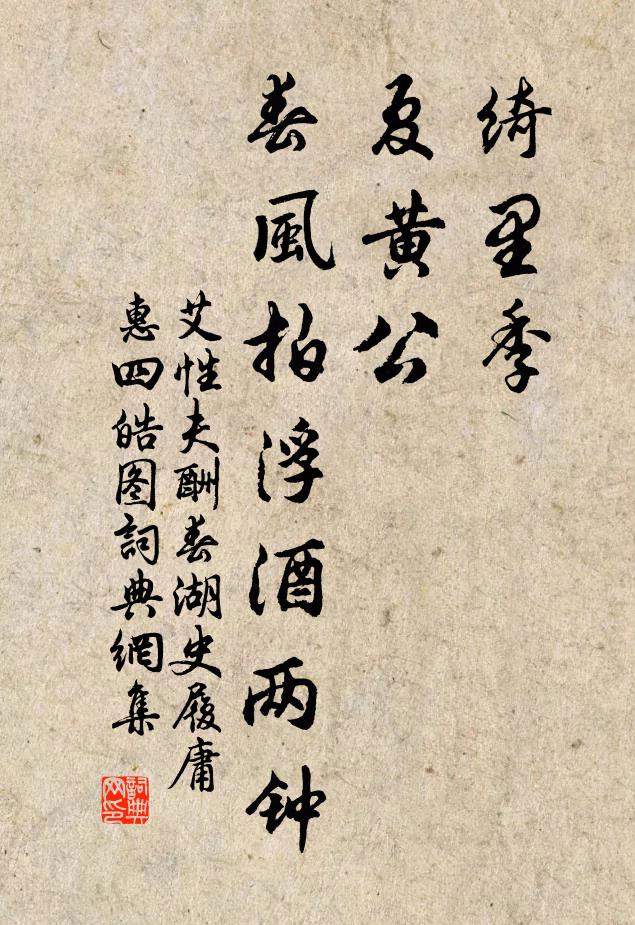 绮里季
夏黄公
春風拍浮酒两钟
艾性夫酬春湖史履庸
惠四皓图詞典網集
詞典网印